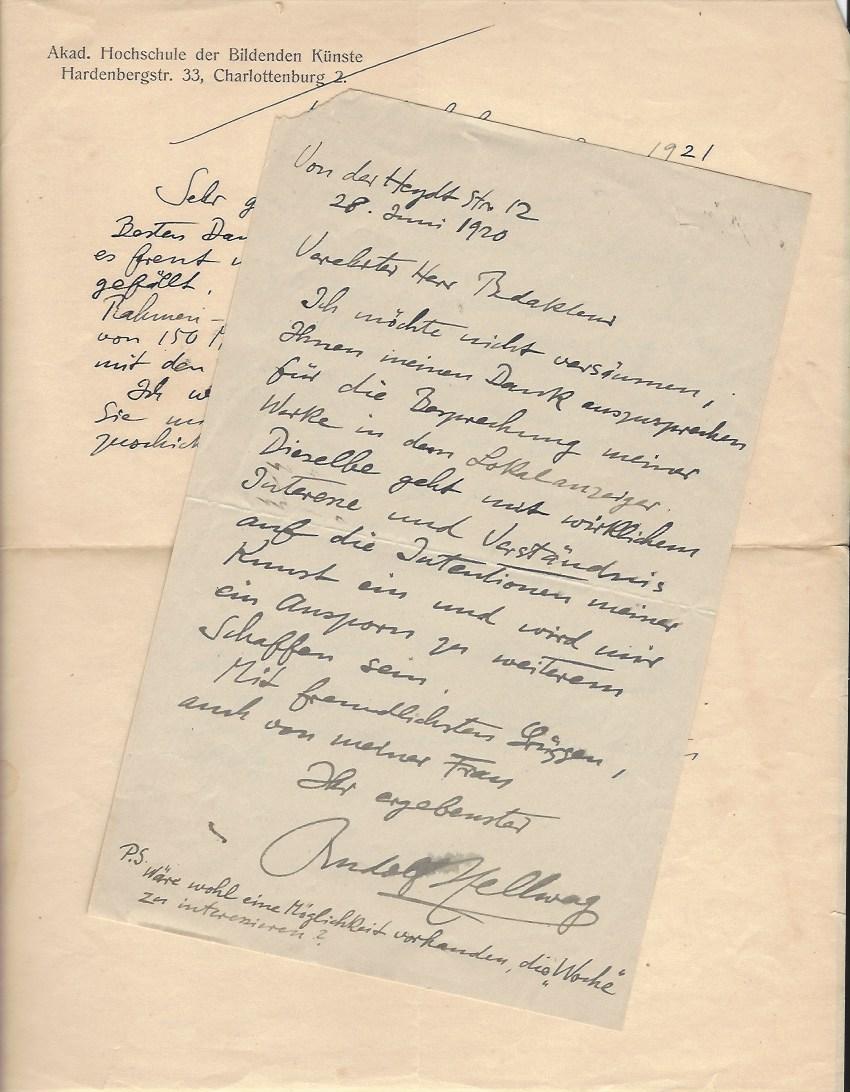 Akad. Hochschule der Bildenden Künste
Hardenbergstr. 33, Charlottenburg 2.
1921
Sehr g
Besten Dan
es freut
gefällt.
Rahmen-
von 150 M
mit den
Ich we
Sie
zuschick
Von der Heydt Str. 12
28. Juni 1920
Verehrter Herr Redakteur
Ich möchte nicht versäumen,
Ihnen meinen Dank auszusprechen
für die Besprechung meiner
Werke in dem Lokalanzeiger.
Dieselbe geht mit wirklichem
Interesse und Verständnis
auf die Intentionen meiner
Kunst ein und wird mir
ein Ansporn zu weiterem
Schaffen sein.
Mit freundlichsten Grüßen,
auch von meiner Frau
Ihr ergebenster
Rudolf Hellwag
P.S. Wäre wohl eine Möglichkeit vorhanden, die „Woche"
zu interessieren?